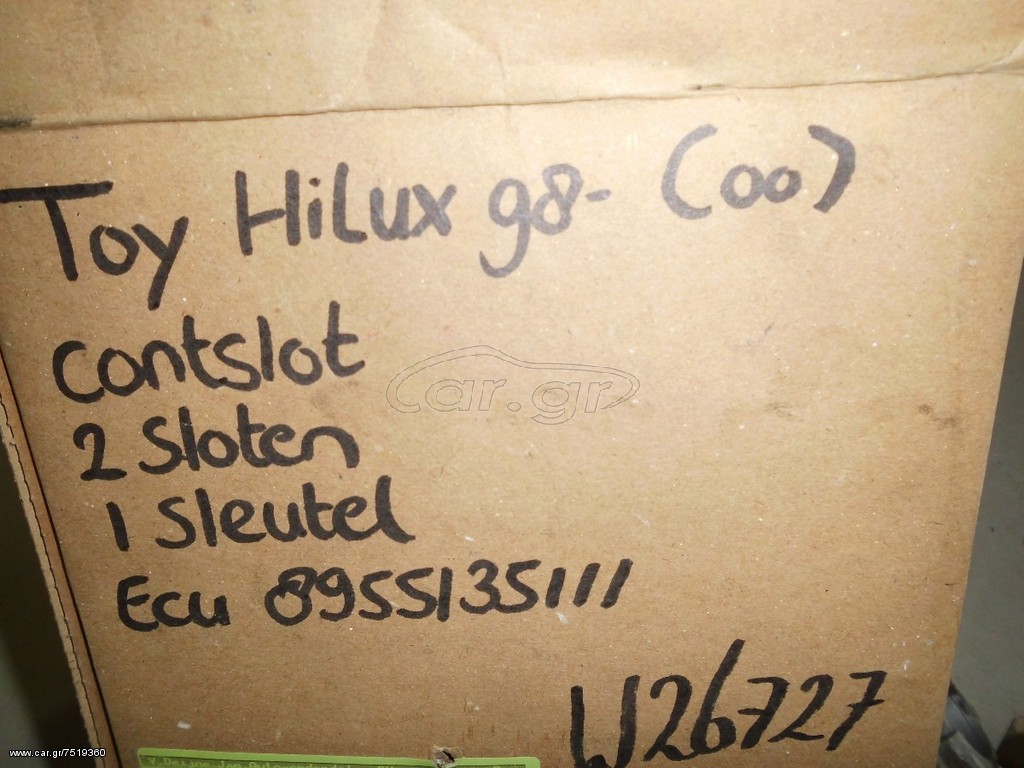 Toy HiLux 98- (00)
contslot
2 Sloten
1 Sleutel
Ecu 8955135111
W26727
car.gr
www.car.gr/7519360